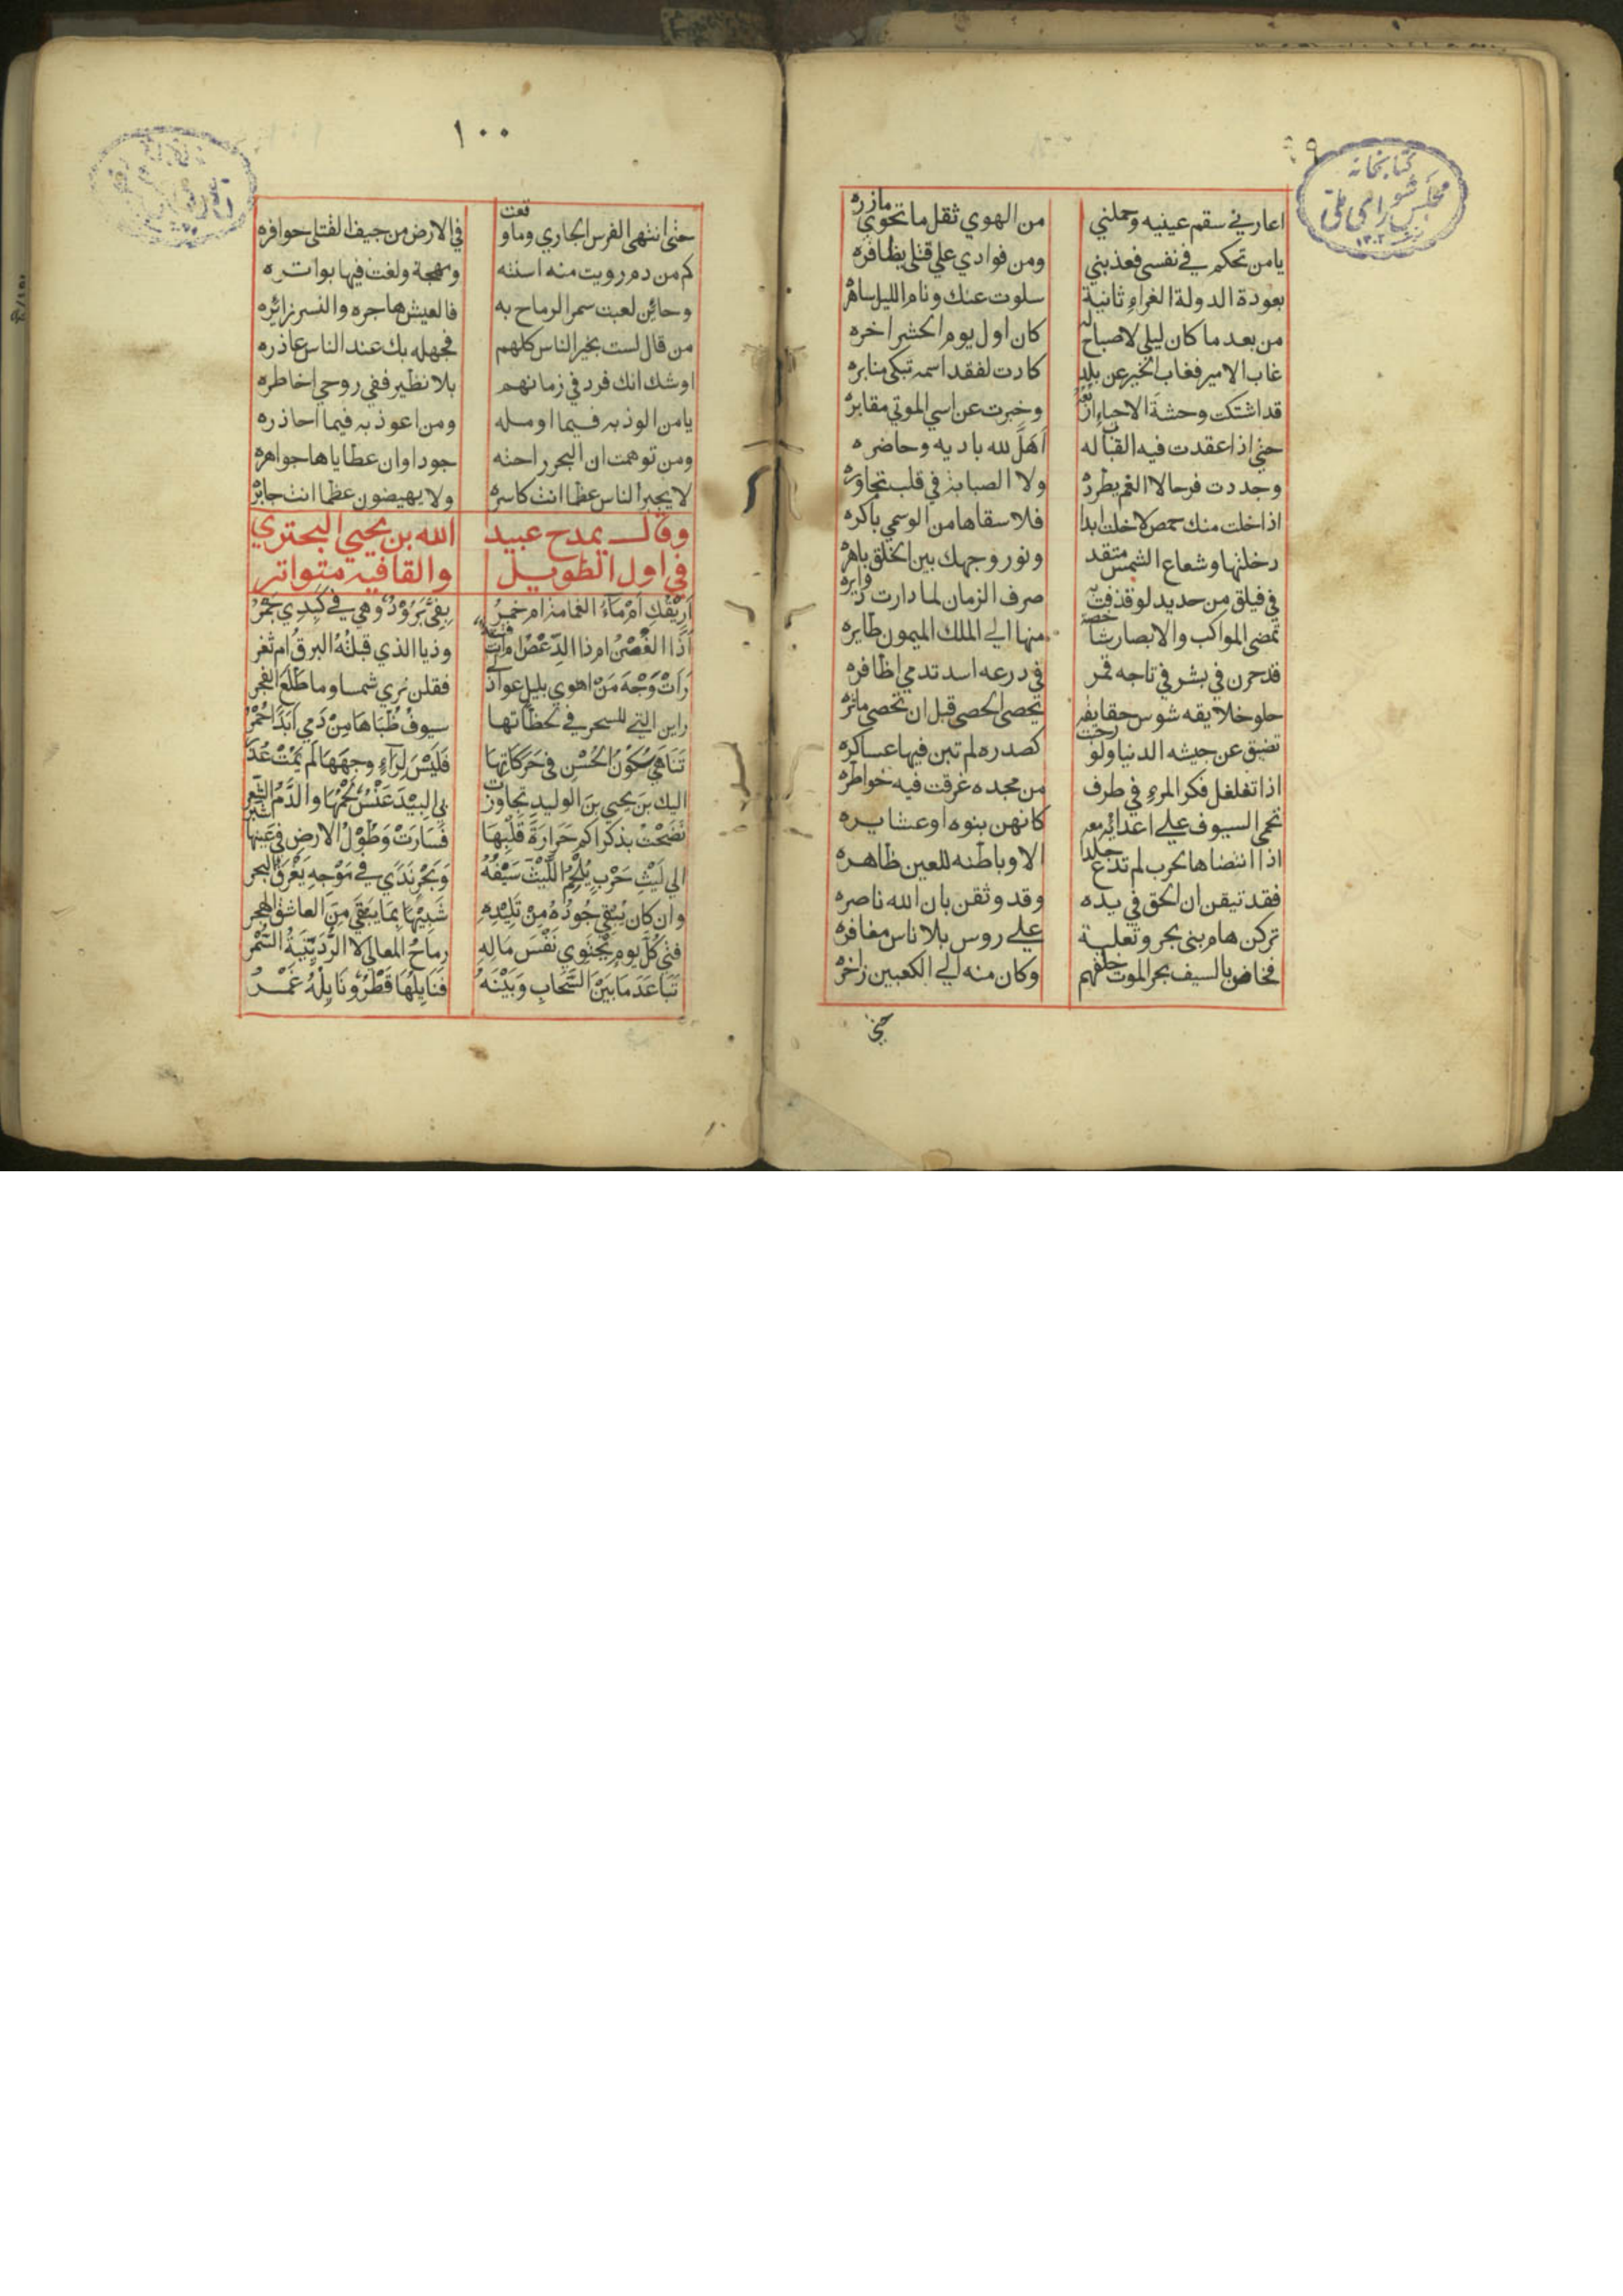 ٩٩
كتابخانه
مجلس شوراى ملى
١٣٠٢
اعارني سقم عينيه وحملني من الهوي ثقل ما تحوي مازره
يا من تحكم في نفسي فعذبني ومن فوادي علي قتلي يظافره
بعودة الدولة الغراء ثانية سلوت عنك ونام الليل ساهره
من بعد ما كان ليلي لا صباح له كان اول يوم الحشر اخره
غاب الامير فغاب الخير عن بلد كادت لفقد اسمه تبكي منابره
قد اشتكت وحشة الاحياء اربعه وخبرت عن اسي الموتي مقابره
حتي اذا عقدت فيه القباب له اهل لله باديه وحاضره
وجددت فرحا لا الغم يطرده ولا الصبابة في قلب تجاوره
اذا خلت منك حمص لا خلت ابدا فلا سقاها من الوسمي باكره
دخلتها وشعاع الشمس متقد ونور وجهك بين الخلق باهره
في فيلق من حديد لو قذفت به صرف الزمان لما دارت دوايره
تمضي المواكب والابصار شاخصة منها الي الملك الميمون طايره
قد حرن في بشر في تاجه قمر في درعه اسد تدمي اظافره
حلو خلايقه شوس حقايقه يحصي الحصي قبل ان تحصي ماثره
تضيق عن جيشه الدنيا ولو رحبت كصدره لم تبن فيها عساكره
اذا تغلغل فكر المرء في طرف من مجده غرقت فيه خواطره
تحمي السيوف علي اعدائه معه كانهن بنوه او عشايره
اذا انتضاها لحرب لم تدع جسدا الا وباطنه للعين ظاهره
فقد تيقن ان الحق في يده وقد وثقن بان الله ناصره
تركن هام بني بحر وثعلبة علي روس بلا ناس مغافره
فخاض بالسيف بحر الموت خلفهم وكان منه الي الكعبين زاخره
حتي
١٠٠
حتي انتهي الفرس الجاري وما وقعت في الارض من جيف القتلي حوافره
كم من دم رويت منه اسنته ومهجة ولغت فيها بواتره
وحائن لعبت سمر الرماح به فالعيش هاجره والنسر زائره
من قال لست بخير الناس كلهم فجهله بك عند الناس عاذره
او شك انك فرد في زمانهم بلا نظير ففي روحي اخاطره
يا من الوذ به فيما اومله ومن اعوذ به فيما احاذره
ومن توهمت ان البحر راحته جودا وان عطاياها جواهره
لا يجبر الناس عظما انت كاسره ولا يهيضون عظما انت جابره
وقال يمدح عبيد الله بن يحيي البحتري
في اول الطويل والقافيه متواتر
اَرِيْقُكِ اَمْ مَآءُ الغمامة ام خمرُ بِفِيَّ بَرُوْدٌ وَهْيَ في كَبِدِي جَمْرُ
اَذَا الغُصْنُ ام ذا الدِّعْصُ ام انت فتنة وذيا الذي قبلتُه البرقُ ام ثغر
رَاَتْ وَجْهَ مَنْ اهوي بليل عواذلي فقلن نري شمسا وما طَلَعَ الفجر
راين التي للسحر في لحظاتها سيوفٌ ظُبَاهَا مِنْ دَمِي اَبَدًا حُمْرُ
تَنَاهَي سُكُوْنُ الحُسْنِ في حَرَكَاتِهَا فَلَيْسَ لِرَاءٍ وجهَهَا لَم يَمُتْ عُذْرُ
اليك بنَ يحيي بنَ الوليدِ تجاوزت بي البِيْدَ عَنْسٌ لَحْمُهَا والدَّمُ الشِّعر
نَضَحْتُ بذكراكم حَرَارَةَ قَلْبِهَا فَسَارَتْ وَطُوْلُ الارضِ في عَينِها شبر
الي لَيْثِ حَرْبٍ يُلْحِمُ اللَّيْثَ سَيْفُهُ وَبَحْرِ نَدًي في مَوْجِهِ يَغْرَقُ البحر
وان كان يُبْقِي جُودُهُ مِنْ تَلِيْدِهِ شَبِيْهًا بِمَا يَبْقَي مِنَ العاشق الهجر
فتي كُلَّ يومٍ يَحْتَوِي نَفْسَ مَالِهِ رماحُ المعالي لا الرُّدَيْنِيَّةُ السُّمْر
تَبَاعَدَ مَا بَيْنَ السَّحَابِ وَبَيْنَهُ فَنَايِلُهَا قَطْرٌ وَنَايِلُهُ غَمْرُ